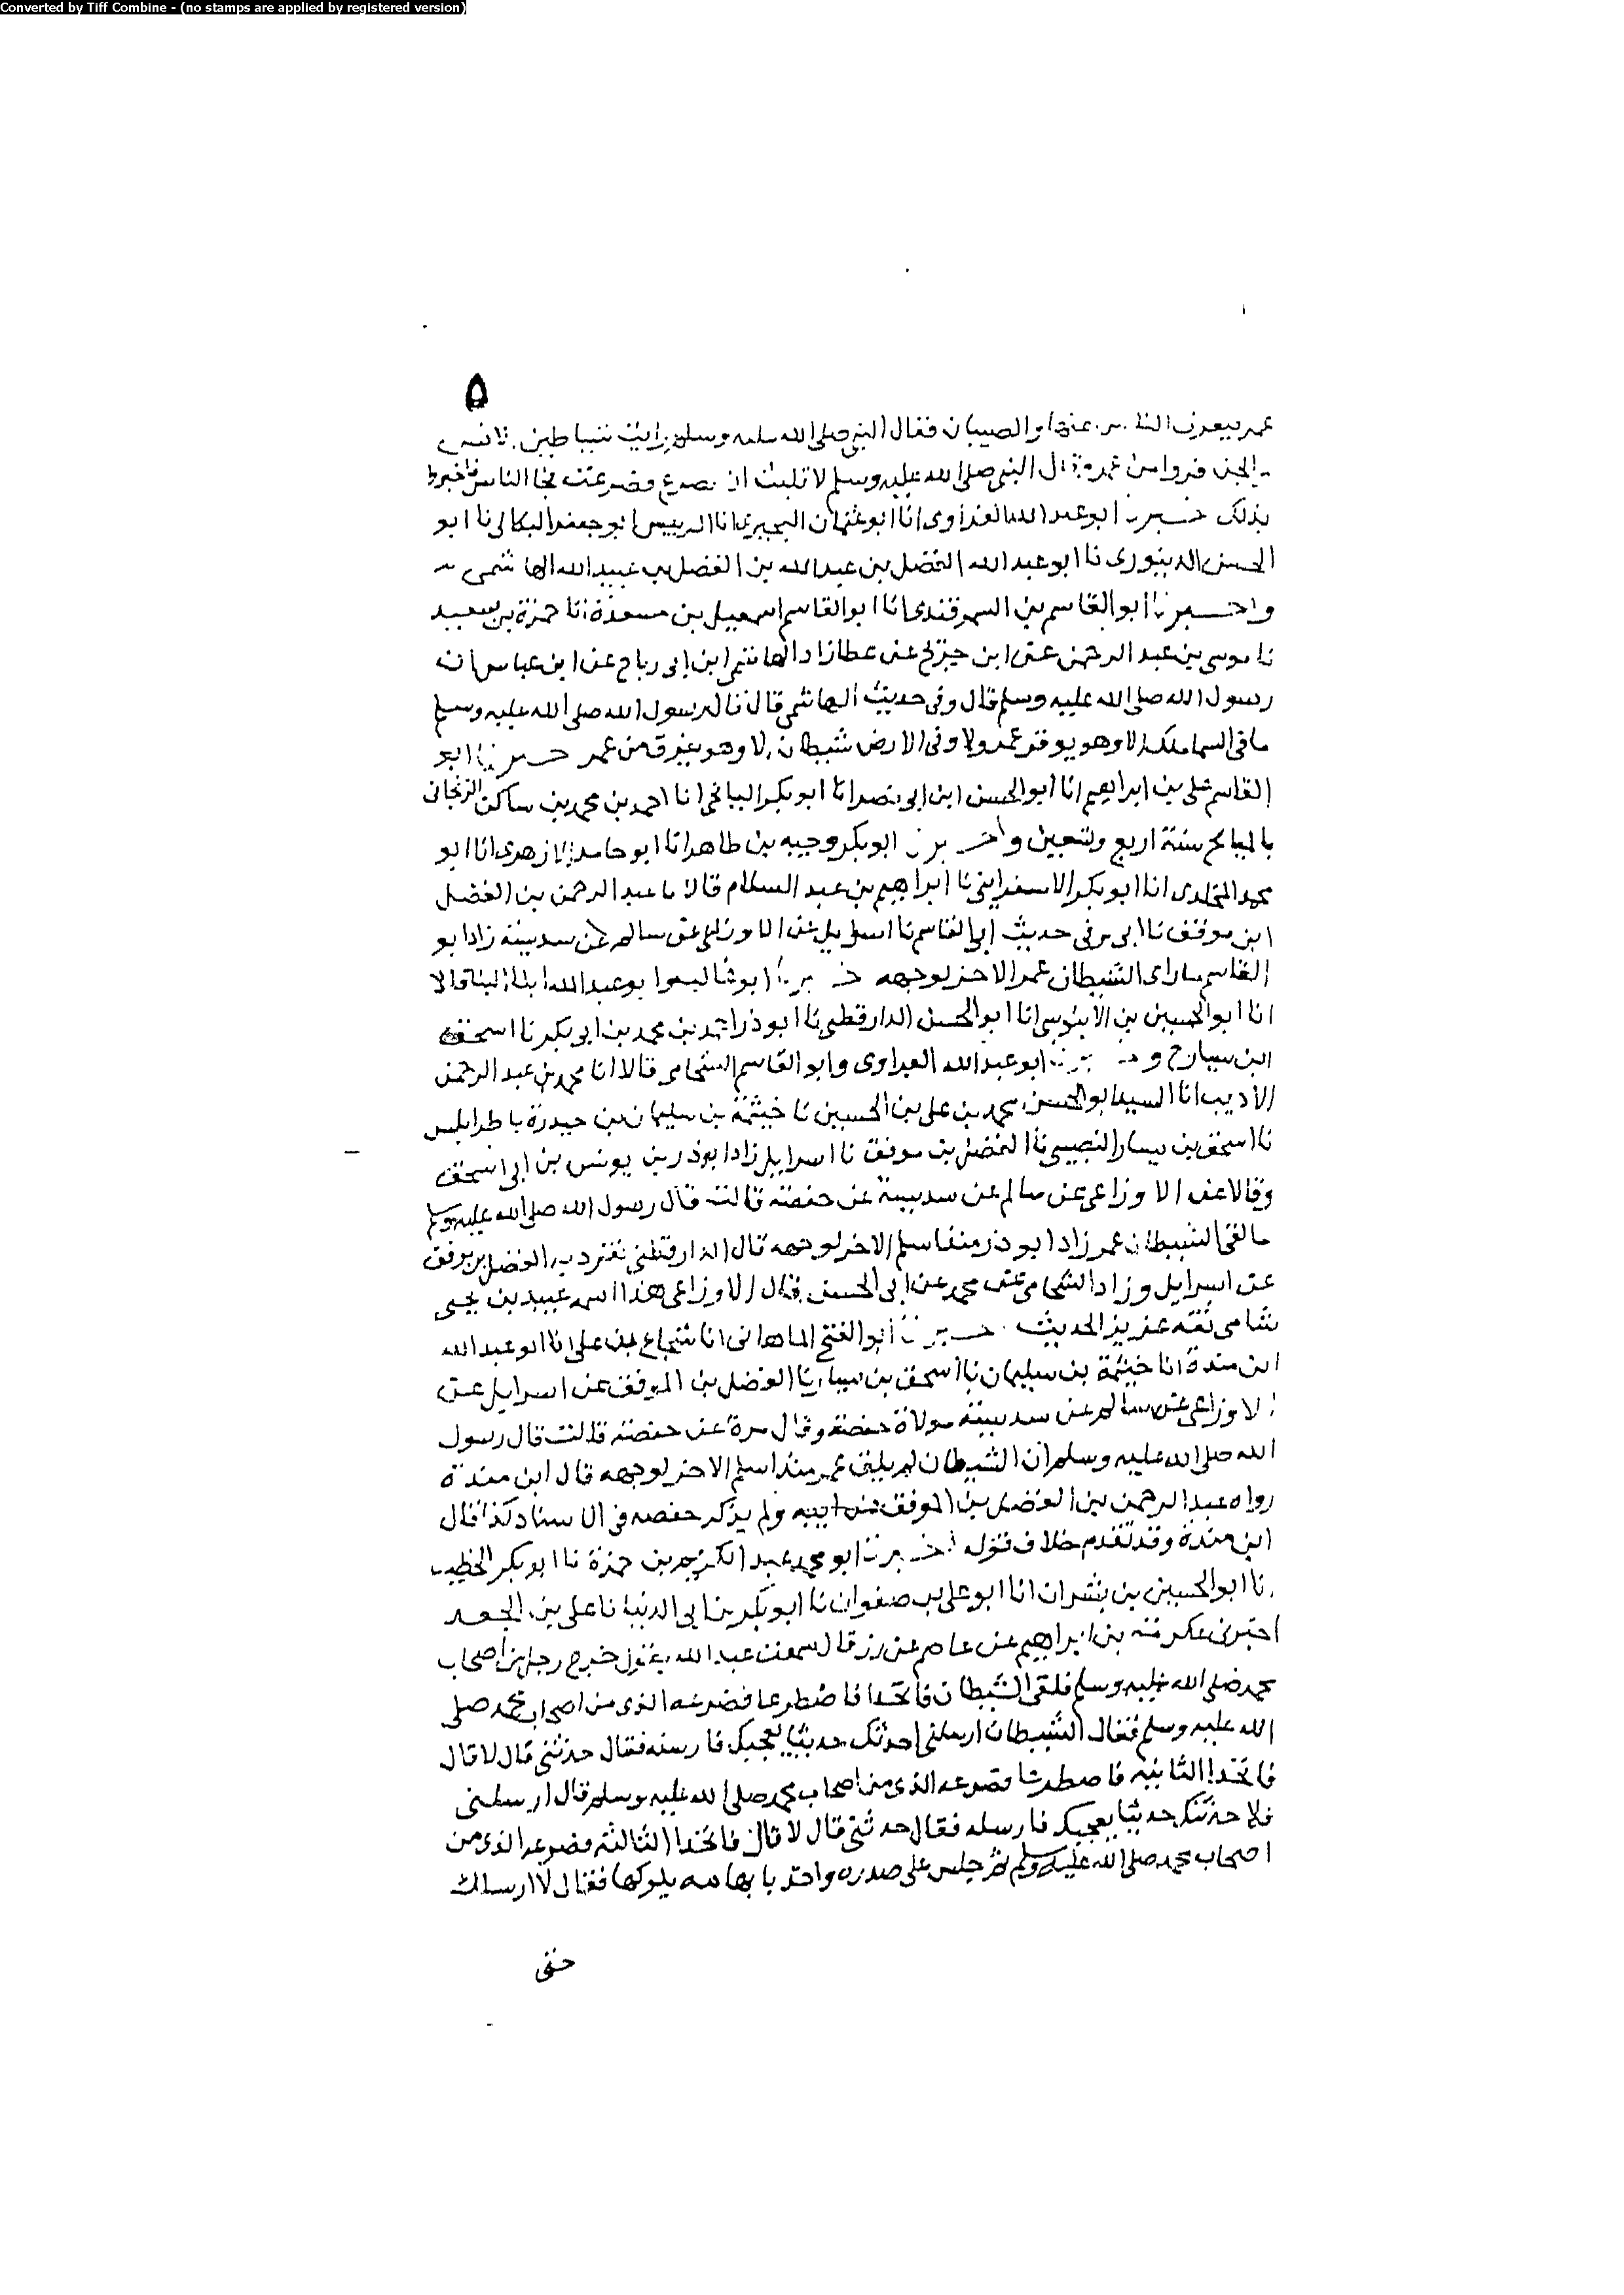 Converted by Tiff Combine - (no stamps are applied by registered version)
٥
عمر فتفرق الناس عنها والصبيان فقال النبي صلى الله عليه وسلم رايت شياطين الانس
والجن فروا من عمر وقال النبي صلى الله عليه وسلم لا تلبث ان تصرع فصرعت فجا الناس فاخبروا
بذلك اخبرنا ابو عبد الله الفراوي انا ابو عثمان البحيري انا الرييس ابو جعفر نا ابو
الحسن الدينوري نا ابو عبد الله الفضل بن عبد الله بن الفضل بن عبيد الله الهاشمي
واخبرنا ابو القاسم بن السمرقندي انا ابو القاسم اسمعيل بن مسعدة انا حمزة بن
نا موسى بن عبد الرحمن عن ابن جريج عن عطا زاد الهاشمي ابن ابي رباح عن ابن عباس ان
رسول الله صلى الله عليه وسلم قال وفي حديث الهاشمي قال قال رسول الله صلى الله عليه وسلم
ما في السما ملك الا وهو يوقر عمر ولا في الارض شيطان الا وهو يفرق من عمر اخبرنا ابو
القاسم علي بن ابراهيم انا ابو الحسن ابن ابي نصر انا ابو بكر انا احمد بن محمد بن ساكن الزنجاني
سنة اربع وتسعين واخبرنا ابو بكر وجيه بن طاهر انا ابو حامد الازهري انا ابو
محمد المخلدي انا ابو بكر الاسفرايني نا ابراهيم بن عبد السلام قالا نا عبد الرحمن بن الفضل
ابن موفق نا ابي وفي حديث ابي القاسم نا اسرايل عن الاوزاعي عن سالم عن سديسة زاد ابو
القاسم ما راى الشيطان عمر الا خر لوجهه اخبرنا ابو غالب وابو عبد الله ابنا البنا قالا
انا ابو الحسين بن الآبنوسي انا ابو الحسن الدارقطني نا ابو ذر احمد بن محمد بن ابي بكر نا اسحق
ابن سيار ح واخبرنا ابو عبد الله الفراوي وابو القاسم الشحامي قالا انا محمد بن عبد الرحمن
الاديب انا السيد ابو الحسن محمد بن علي بن الحسين نا خيثمة بن سليمان بن حيدرة باطرابلس
نا اسحق بن سيار النصيبي نا الفضل بن موفق نا اسرايل زاد ابو ذر بن يونس بن ابي اسحق
وقالا عن الاوزاعي عن سالم عن سديسة عن حفصة قالت قال رسول الله صلى الله عليه وسلم
ما لقي الشيطان عمر زاد ابو ذر منذ اسلم الا خر لوجهه قال الدارقطني تفرد به الفضل بن موفق
عن اسرايل وزاد الشحامي عن محمد عن ابي الحسن قال الاوزاعي هذا اسمه عبيد بن يحيى
شامي ثقة عزيز الحديث اخبرنا ابو الفتح الماهاني انا شجاع بن علي انا ابو عبد الله
ابن مندة انا خيثمة بن سليمان نا اسحق بن سيار نا الفضل بن الموفق عن اسرايل عن
الاوزاعي عن سالم عن سديسة مولاة حفصة وقال مرة عن حفصة قالت قال رسول
الله صلى الله عليه وسلم ان الشيطان لم يلق عمر منذ اسلم الا خر لوجهه قال ابن مندة
رواه عبد الرحمن بن الفضل بن الموفق عن ابيه ولم يذكر حفصه في الاسناد كذا قال
ابن مندة وقد تقدم خلاف قوله اخبرنا ابو محمد عبد الكريم بن حمزة نا ابو بكر الخطيب
نا ابو الحسين بن بشران انا ابو علي بن صفوان نا ابو بكر بن ابي الدنيا نا علي بن الجعد
اخبرني عكرمة بن ابراهيم عن عاصم عن زر قال سمعت عبد الله يقول خرج رجل من اصحاب
محمد صلى الله عليه وسلم فلقي الشيطان فاتخدا فاصطرعا فصرعه الذي من اصحاب محمد صلى
الله عليه وسلم فقال الشيطان ارسلني احدثك حديثا يعجبك فارسله فقال حدثني قال لا قال
فاتخدا الثانيه فاصطرعا فصرعه الذي من اصحاب محمد صلى الله عليه وسلم قال ارسلني
فلاحدثنك حديثا يعجبك فارسله فقال حدثني قال لا قال فاتخدا الثالثة فصرعه الذي من
اصحاب محمد صلى الله عليه وسلم ثم جلس على صدره واخذ بابهامه يلوكها فقال لا ارسلك
حتى